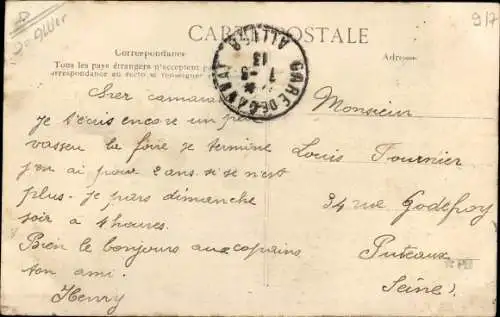 CARTE POSTALE
Correspondance
Adresse
Tous les pays étrangers n'acceptent pas
correspondance au recto se renseigner
GARE DE GANNAT
ALLIER
7 -3
13
917
Cher camarad
je t'écris encore un peu
vasseu la foire se termine
j'en ai pour 2 ans si se n'est
plus. je pars dimanche
soir a 4 heures.
Bien le bonjours aux copains
ton ami.
Henry
Monsieur
Louis Fournier
34 rue Godefroy
Puteaux
Seine